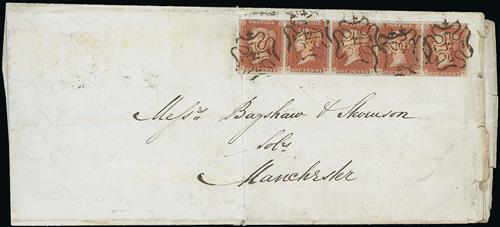 POSTAGE POSTAGE POSTAGE POSTAGE POSTAGE
ONE PENNY. ONE PENNY. ONE PENNY. ONE PENNY. ONE PENNY.
Messrs Bagshaw &
Solrs
Manchester